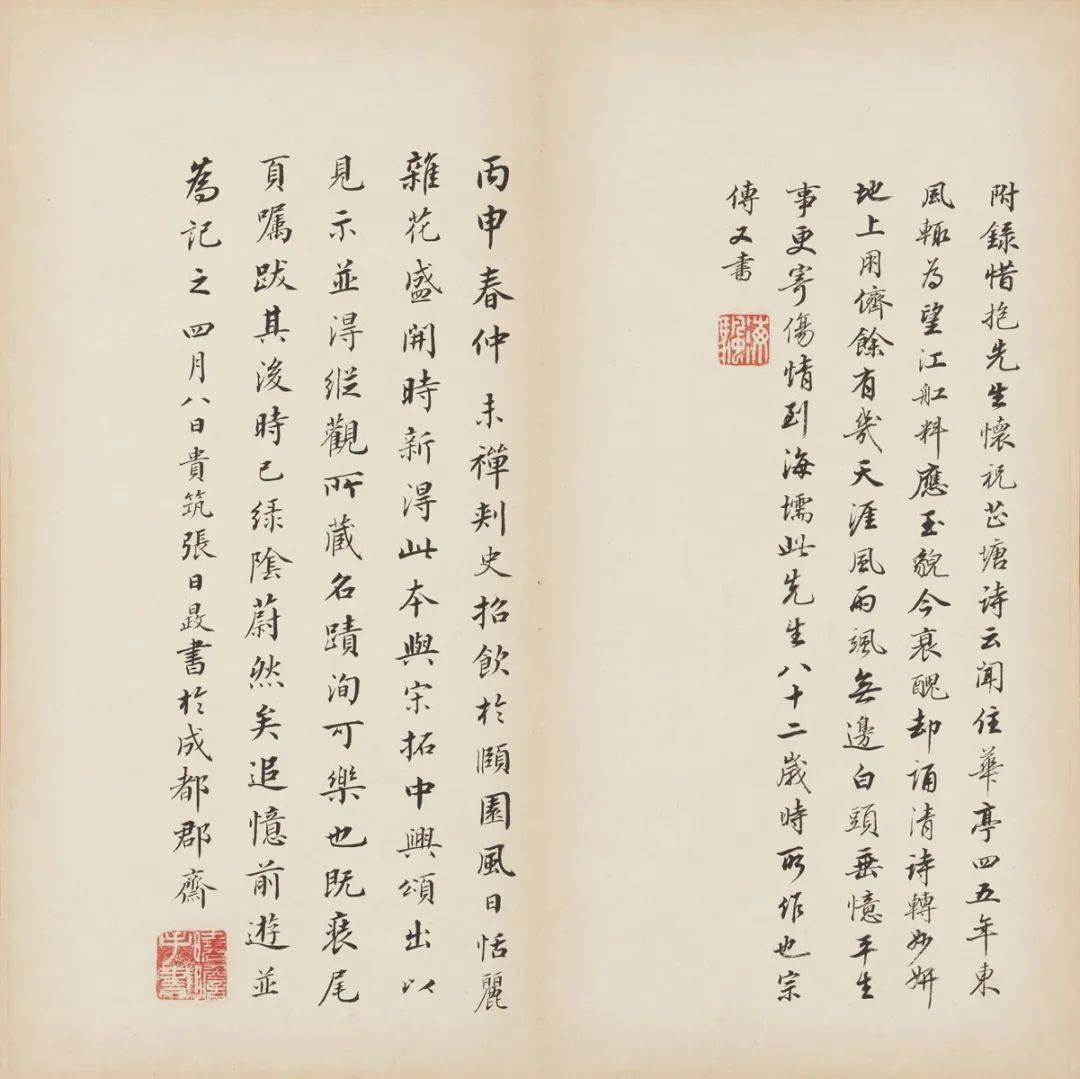 附録惜抱先生懷祝芷塘诗云闻住華亭四五年東
風輙为望江船料應玉貌今衰醜却诵清诗轉妙妍
地上朋儕餘有幾天涯風雨颯無邊白頭垂憶平生
事更寄傷情到海壖此先生八十二歲時所作也宗
傳又書
丙申春仲未禪刺史招飲於頤園風日恬麗
雜花盛開時新得此本與宋拓中興頌出以
見示並得縱觀所藏名蹟洵可樂也既裝尾
頁嘱跋其後時已緑陰蔚然矣追憶前遊並
為記之四月八日貴筑張日晸書於成都郡齋